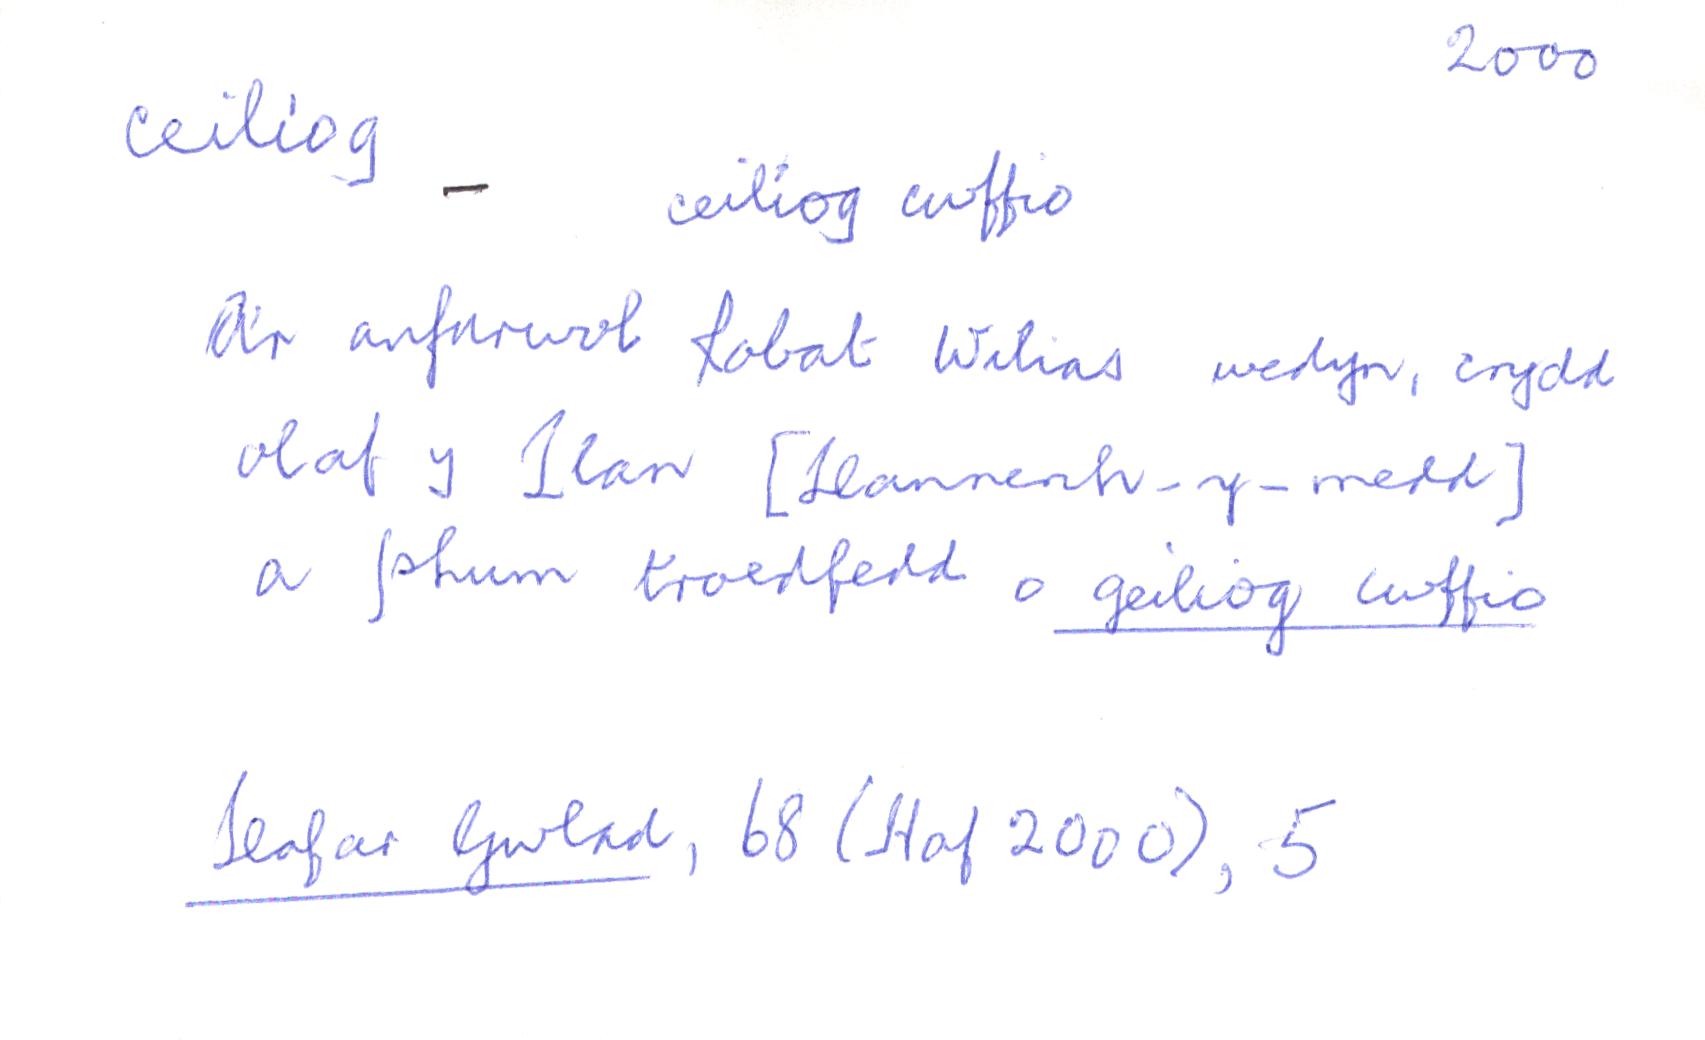 2000
ceiliog
– ceiliog cwffio
A'r anfarwol Robat Wilias wedyn, crydd
olaf y Llan [Llannerch-y-medd]
a phum troedfedd o geiliog cwffio
Llafar Gwlad, 68 (Haf 2000), 5